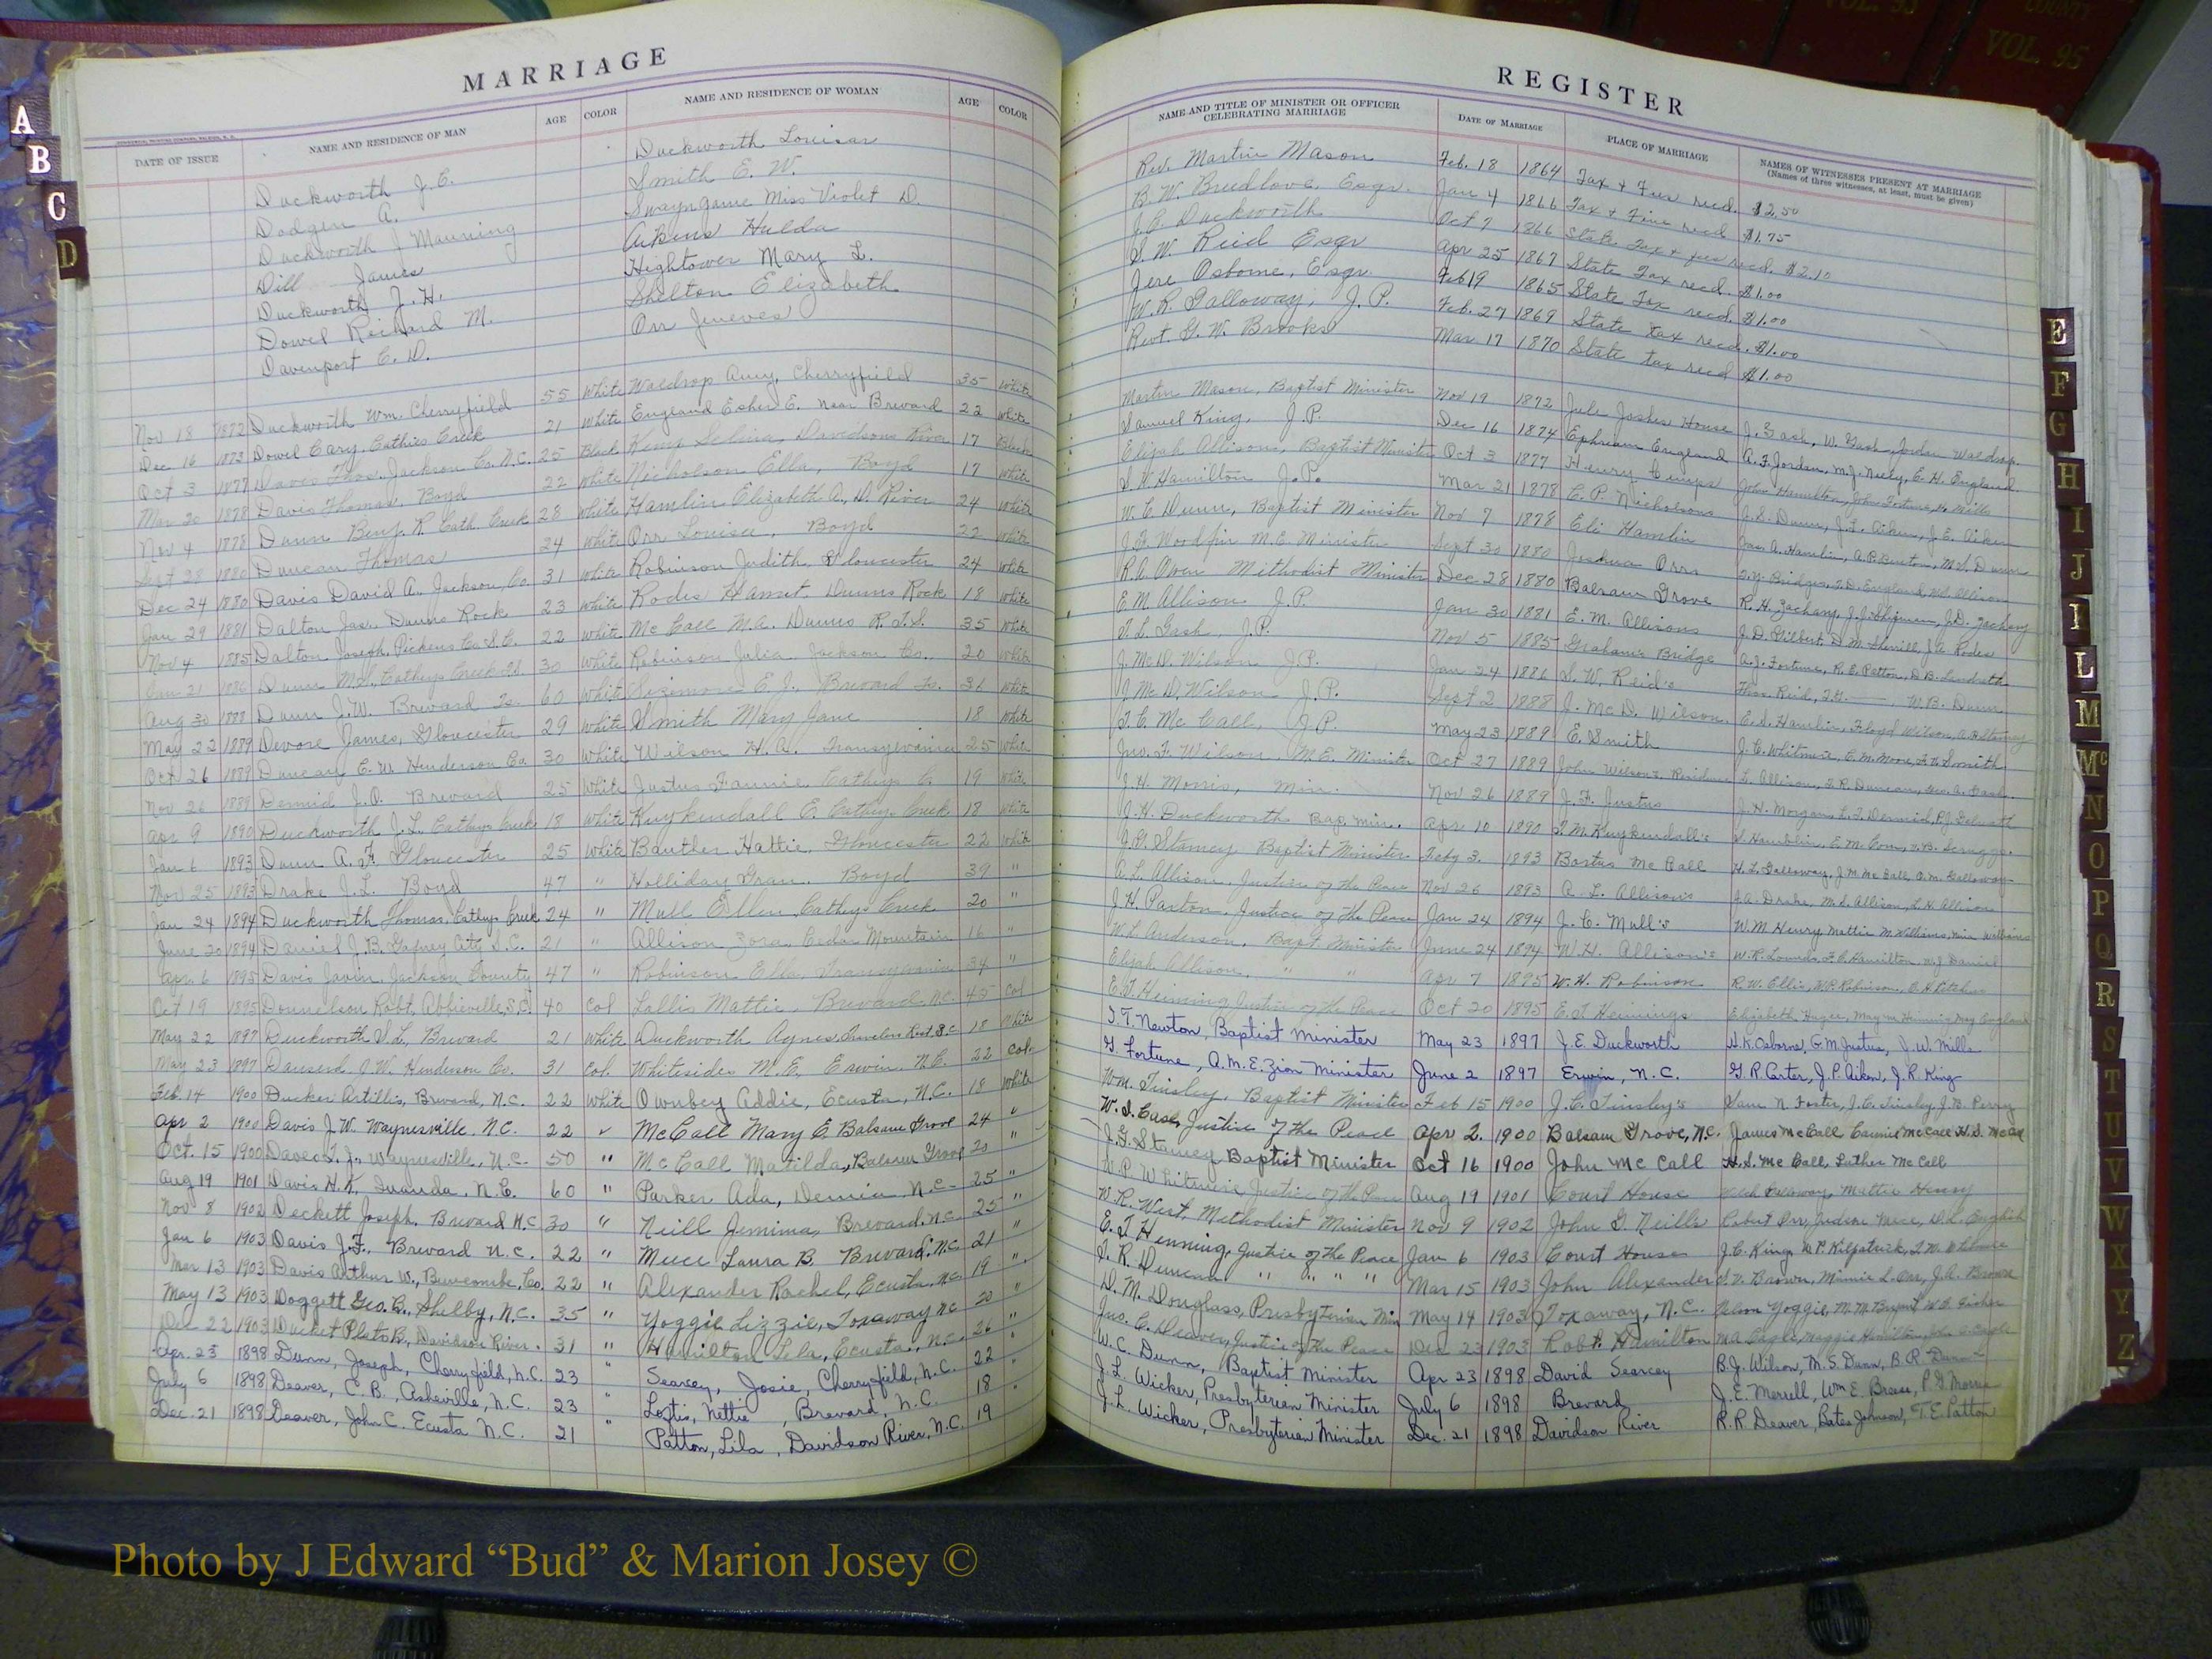 COUNTY
VOL. 95
VOL. 95
A
B
C
D
MARRIAGE
DATE OF ISSUE NAME AND RESIDENCE OF MAN AGE COLOR NAME AND RESIDENCE OF WOMAN AGE COLOR
Duckworth J. C. Duckworth Louisa
Dodgen A. Smith E. W.
Duckworth J Manning Swayngame Miss Violet D.
Dill James Aikens Hulda
Duckworth J. H. Hightower Mary L.
Dowel Richard M. Shelton Elizabeth
Davenport C. D. Orr Jeneves
Nov 18 1872 Duckworth Wm. Cherryfield 55 White Waldrop Amy, Cherryfield 35 White
Dec 16 1873 Dowel Cary, Cathies Creek 21 White England Esher E. near Brevard 22 White
Oct 3 1877 Davis Thos. Jackson Co. N.C. 25 Black Kemp Davidsons River 17 Black
Mar 20 1878 Davis Thomas, Boyd 22 White Nicholson Ella, Boyd 17 White
Nov 4 1878 Dunn Benj. R. Cath. Creek 28 White Hamlin Elizabeth A., D. River 24 White
Sept 28 1880 Duncan Thomas 24 White Orr Louisa, Boyd 22 White
Dec 24 1880 Davis David A. Jackson, Co. 31 White Robinson Judith, Gloucester 24 White
Jan 29 1881 Dalton Jas. Dunns Rock 23 White Rodes Hamet. Dunns Rock 18 White
Nov 4 1885 Dalton Joseph, Pickens Co. S.C. 22 White McCall M.A. Dunns R. T.S. 35 White
Jan 21 1886 Dunn M.S., Catheys Creek 30 White Robinson Julia Jackson Co. 20 White
Aug 30 1888 Dunn J.W. Brevard 60 White Sizemore E. J. Brevard 36 White
May 22 1889 Devore James, Gloucester 29 White Smith Mary Jane 18 White
Oct 26 1889 Duncan E. W. Henderson Co. 30 White Wilson H. A. Transylvania 25 White
Nov 26 1889 Dermid J. O. Brevard 25 White Justus Fannie Catheys Cr 19 White
Apr 9 1890 Duckworth J. L. Catheys Creek 18 White Kuykendall E. Catheys Creek 18 White
Jan 6 1893 Dunn A. F. Gloucester 25 White Banther Hattie, Gloucester 22 White
Nov 25 1893 Drake J. L. Boyd 47 " Holliday Fran. Boyd 39 "
Jan 24 1894 Duckworth Thomas, Catheys Creek 24 " Mull Ellen Catheys Creek 20 "
June 20 1894 Daniel J. B. Gafney City S.C. 21 " Allison Zora Cedar Mountain 16 "
Apr. 6 1895 Davis Javin, Jackson County 47 " Robinson Ella, Transylvania 34 "
Oct 19 1895 Donnelson Robt. Abbieville, S.C. 40 Col Lallis Mattie, Brevard N.C. 45 Col
May 22 1897 Duckworth V. L., Brevard 21 White Duckworth Agnes S.C. 18 White
May 23 1897 J. W. Henderson Co. 31 Col. Whitesides M. E. Erwin, N.C. 22 Col.
Feb. 14 1900 Ducker Artillis, Brevard, N.C. 22 White Ownbey Addie, Ecusta, N.C. 18 White
Apr 2 1900 Davis J. W. Waynesville, N.C. 22 " McCall Mary E. Balsam Grove 24 "
Oct. 15 1900 Daves T. J., Waynesville, N.C. 50 " McCall Matilda, Balsam Grove 20 "
Aug 19 1901 Davis H. K. Juanda, N.C. 60 " Parker Ada, N.C. 25 "
Nov 8 1902 Deckett Joseph, Brevard N.C. 30 " Neill Jemima, Brevard, N.C. 25 "
Jan 6 1903 Davis J. F., Brevard N.C. 22 " Meece Laura B. Brevard, N.C. 21 "
Mar 13 1903 Davis Arthur W., Buncombe Co. 22 " Alexander Rachel, Ecusta, N.C. 19 "
May 13 1903 Doggett Geo. B., Shelby, N.C. 35 " Yoggie Lizzie, Toxaway N.C. 30 "
Dec 22 1903 Ducket Plato B., Davidson River. 31 " Hamilton Lila, Ecusta, N.C. 26 "
Apr. 23 1898 Dunn, Joseph, Cherryfield, N.C. 23 " Searcey, Josie, Cherryfield, N.C. 22 "
July 6 1898 Deaver, C. B., Asheville, N.C. 23 " Loftis, Nettie, Brevard, N.C. 18 "
Dec. 21 1898 Deaver, John C. Ecusta N.C. 21 " Patton, Lila, Davidson River, N.C. 19
REGISTER
NAME AND TITLE OF MINISTER OR OFFICER CELEBRATING MARRIAGE DATE OF MARRIAGE PLACE OF MARRIAGE NAMES OF WITNESSES PRESENT AT MARRIAGE
(Names of three witnesses, at least, must be given)
Rev. Martin Mason Feb. 18 1864 Tax & Fees recd. $2.50
B. W. Breedlove, Esqr. Jan 4 1866 Tax & Fine recd $1.75
J. C. Duckworth Oct 7 1866 State Tax & fees recd. $2.10
S. W. Reid Esqr Apr 25 1867 State Tax recd. $1.00
Jere Osborne, Esqr. Feb 19 1865 State Tax recd. $1.00
W. R. Galloway, J. P. Feb. 27 1869 State Tax recd. $1.00
Revt. G. W. Brooks Mar 17 1870 State tax recd $1.00
Martin Mason, Baptist Minister Nov 19 1872 House J. Gash, W. Gash, Jordan Waldrop.
Samuel King, J. P. Dec 16 1874 Ephriam England A. F. Jordan, M. J. Neely, E. H. England.
Elijah Allison, Baptist Minister Oct 3 1877 Henry Kemps John Hamilton, John Fortune,
S. W. Hamilton J. P. Mar 21 1878 C. P. Nicholsons J. S. Dunn, J. L. Aiken, J. E. Aiken
W. C. Dunn, Baptist Minister Nov 7 1878 Eli Hamlin Jas. A. Hamlin, A. P. Burton, M. S. Dunn
J. G. Woodfin M.E. Minister Sept 30 1880 Joshua Orrs
R. A. Owen Methodist Minister Dec 28 1880 Balsam Grove R. H. Zachary, J. J. Shipman, J. D. Zachary
E. M. Allison J. P. Jan 30 1881 E. M. Allisons J. D. Gilbert, D. M. Sherrill, J. A. Rodes
T. L. Gash, J.P. Nov 5 1885 Grahams Bridge A. J. Fortune, R. E. Patton, D. B.
J. McD. Wilson J.P. Jan 24 1886 S. W. Reid's Thos. Reid, W. B. Dunn
J. McD. Wilson J. P. Sept 2 1888 J. McD. Wilson, E. S. Hamlin, Floyd Wilson,
T. C. McCall, J. P. May 23 1889 E. Smith J. C. Whitmire, E. M. Moore, Smith
Jno. F. Wilson, M.E. Minister Oct 27 1889 John Wilson's Residence L. Allison, F. R. Duncan, Geo. A. Gash.
J. H. Morris, Min. Nov 26 1889 J. F. Justus J. H. Morgan, L. F. Dermid,
J. H. Duckworth Bap. min. Apr 10 1890 F. M. Kuykendall's
J. G. Stamey Baptist Minister Feby 3. 1893 Bartus McCall H. L. Galloway, J. M. McCall, A. M. Galloway
A. L. Allison, Justice of the Peace Nov 26 1893 A. L. Allison's J. A. Drake, M. L. Allison, L. H. Allison
J. H. Paxton, Justice of the Peace Jan 24 1894 J. C. Mull's W. M. Henry, Mattie McWilliams,
W. L. Anderson, Bapt. Minister June 24 1894 W. H. Allison's Hamilton, W. J. Daniel
Elijah Allison, " " Apr 7 1895 W. H. Robinson R. W. Ellis, W. P. Robinson,
E. T. Henning Justice of the Peace Oct 20 1895 E. T. Hennings Elizabeth Hager,
T. T. Newton, Baptist Minister May 23 1897 J. E. Duckworth H. K. Osborne, G. M. Justus, J. W. Mills
G. Fortune, A. M. E. Zion Minister June 2 1897 Erwin, N.C. G. R. Carter, J. P. Aiken, J. R. King
Wm. Tinsley, Baptist Minister Feb 15 1900 J. C. Tinsley's Sam N. Foster, J. C. Tinsley, J. B. Perry
W. S. Case, Justice of the Peace Apr 2. 1900 Balsam Grove, N.C. James McCall Cannie McCall H. S. McCall
J. G. Stamey Baptist Minister Oct 16 1900 John McCall H. S. McCall, Luther McCall
W. P. Whitmire Justice of the Peace Aug 19 1901 Court House Mattie Henry
W. R. West, Methodist Minister Nov 9 1902 John G. Neills Robert Orr, Meece, English
E. T. Henning, Justice of the Peace Jan 6 1903 Court House J. C. King, W. P. Kilpatrick, T. W. Whitmire
S. R. Duncan " " " " Mar 15 1903 John Alexander Brown, Minnie L. Orr,
D. M. Douglass, Presbyterian Min May 14 1903 Toxaway, N.C. Nelson Yoggie,
Jas. C. Deaver, Justice of the Peace Dec 23 1903 Robt. Hamilton
W. C. Dunn, Baptist Minister Apr 23 1898 David Searcey B. J. Wilson, M. S. Dunn, B. R. Dunn
J. L. Wicker, Presbyterian Minister July 6 1898 Brevard J. E. Merrell, Wm E. Breese,
J. L. Wicker, Presbyterian Minister Dec. 21 1898 Davidson River R. R. Deaver, Bates Johnson, T. E. Patton
E
F
G
H
I
J
L
M
Mc
N
O
P
Q
R
S
T
U
V
W
X
Y
Z
Photo by J Edward “Bud” & Marion Josey ©